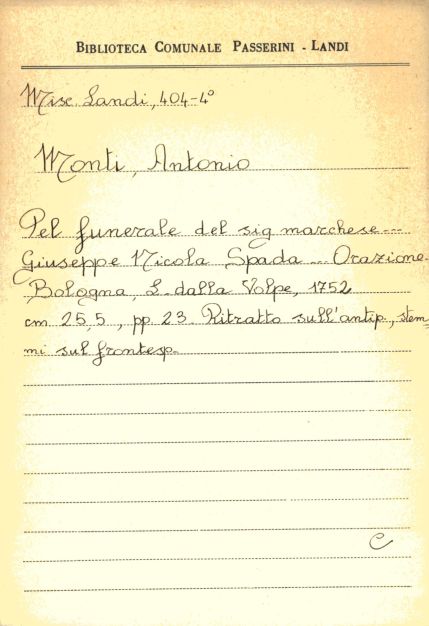 BIBLIOTECA COMUNALE PASSERINI - LANDI
Misc. Landi, 404-4°
Monti, Antonio
Pel funerale del sig marchese ...
Giuseppe Nicola Spada ... Orazione.
Bologna, L. dalla Volpe, 1752
cm 25,5, pp. 23. Ritratto sull'antip., stem-
mi sul frontesp.
C